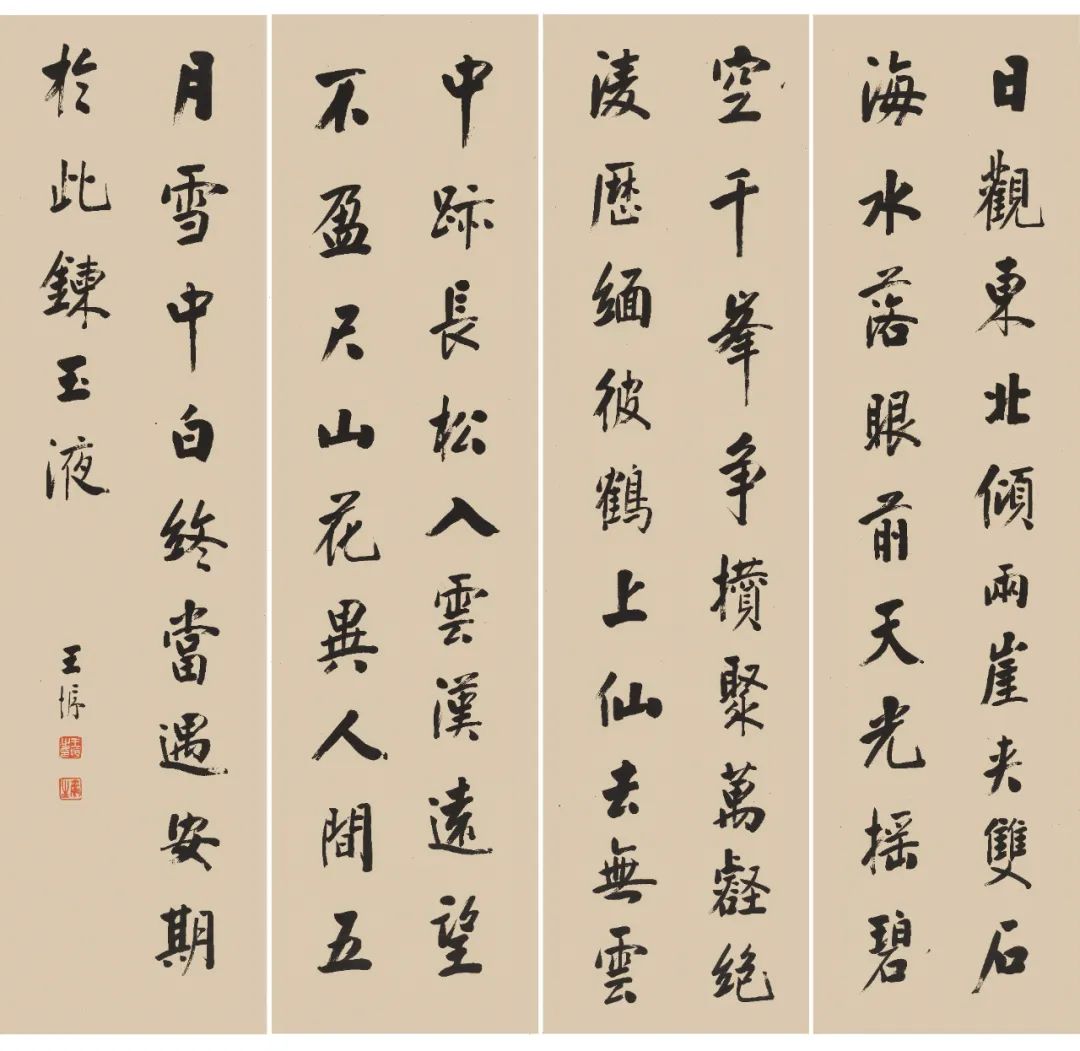 日觀東北傾兩崖夾雙石
海水落眼前天光摇碧
空千峯争攅聚萬壑絶
淩歷緬彼鶴上仙去無雲
中跡長松入雲漢遠望
不盈尺山花異人間五
月雪中白終當遇安期
於此鍊玉液
王